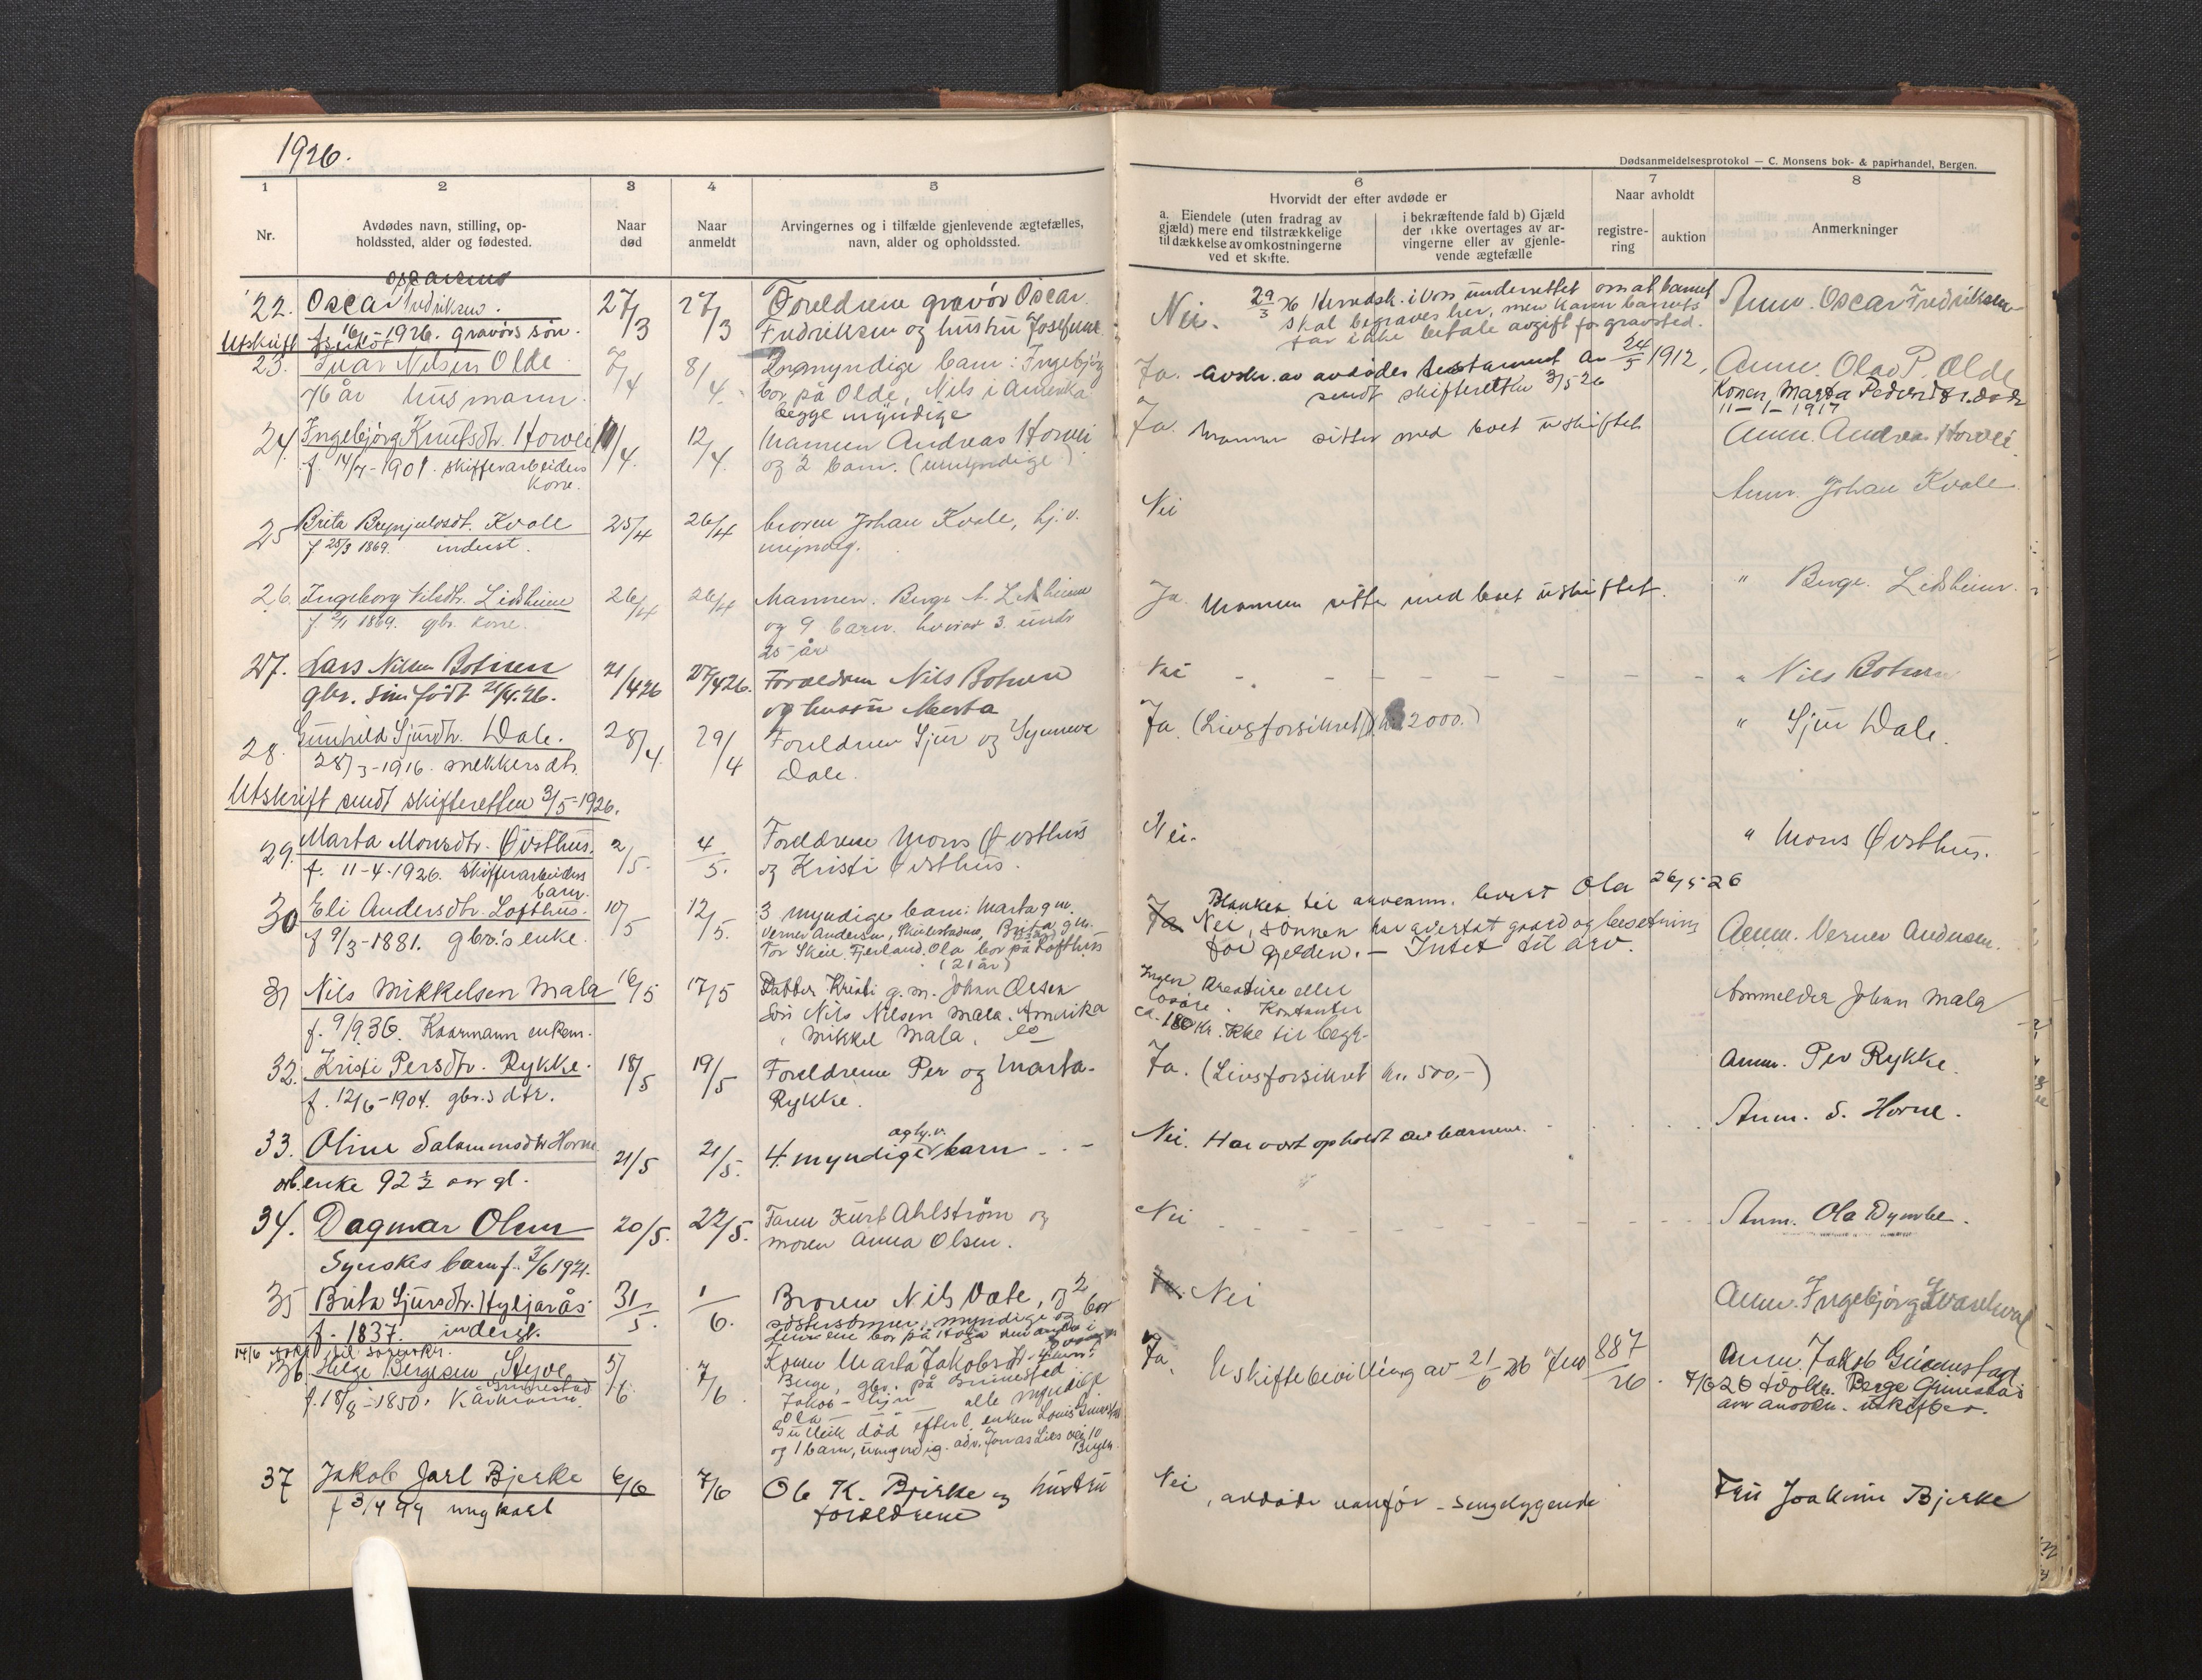 1926.
Dødsanmeldelsesprotokol — C. Monsens bok- & papirhandel, Bergen.
1
2
3
4
5
6
7
8
Nr.
Avdødes navn, stilling, op-
holdssted, alder og fødested.
Naar
død
Naar
anmeldt
Arvingernes og i tilfælde gjenlevende ægtefælles,
navn, alder og opholdssted.
Hvorvidt der efter avdøde er
a. Eiendele (uten fradrag av
gjæld) mere end tilstrækkelige
til dækkelse av omkostningerne
ved et skifte.
i bekræftende fald b) Gjæld
der ikke overtages av ar-
vingerne eller av gjenle-
vende ægtefælle
Naar avholdt
registre-
ring
auktion
Anmerkninger
22. Oscar Fredriksen.
1926. gravørs søn.
27/3
27/3
Foreldrene gravør Oscar
Fredriksen og hustru Josefine
Nei. 29/3 26 Herredsk. i Voss underrettet om at barnet
skal begraves her, men kann barnets
far ikke betale avgift for gravsted.
Anm. Oscar Fredriksen
Utskrift
23. Ivar Nilsen Olde
76 år husmann.
7/4
8/4
2 myndige barn: Ingebjørg
bor på Olde, Nils i Amerika
begge myndige
Ja. Avskr. av avdødes testament av 24/5 1912,
sendt skifteretten 3/5 26
Anm. Olav P. Olde
Konen, Marta Pedersdtr. døde
11-1-1917
24. Ingebjørg Knutsdtr. Horvei
f. 14/7-1901. skiferarbeiders
kone.
11/4.
12/4.
Mannen Andreas Horvei
og 2 barn. (umyndige)
Ja. Mannen sitter med boet uskiftet
Anm. Andreas Horvei.
25 Brita Brynjulvsdt. Kvale
f 25/3 1869. inderst.
25/4
26/4
broren Johan Kvale, hj.v.
myndig.
Nei
Anm. Johan Kvale.
26. Ingeborg Nilsdtr. Lidsheim
1869. gbr. kone.
26/4
26/4
Mannen. Berge A. Lidsheim
og 9 barn. hvorav 3. under
25 år
Ja. Mannen sitte med boet uskiftet.
" Berge. Lidsheim.
27. Lars Nilsen Botnen
gbr. søn født 21/4.26.
21/4 26
27/4 26.
Foreldrene Nils Botnen
og hustru Marta
Nei
" Nils Botnen
28. Gunhild Sjursdtr. Dale.
28/3-1916. snekkers dtr.
28/4.
29/4
Foreldrene Sjur og Synneva
Dale.
Ja (Livsforsikret kr. 2000.)
" Sjur Dale.
Utskrift sendt skifteretten 3/5-1926.
29. Marta Monsdtr. Øvsthus.
f. 11-4-1926. skiferarbeiders
barn.
2/5.
4/5.
Foreldrene Mons Øvsthus
og Kristi Øvsthus.
Nei.
" Mons Øvsthus.
30 Eli Andersdtr. Lofthus.
f 9/3-1881. gbr.'s enke.
10/5
12/5.
3 myndige barn: Marta g.m.
Verner Andersen, Brita g.m.
Tor Skeie, Fjerland. Ola bor på Lofthus
(21 år)
Blanket til arveanm. levert Ola 26/5 26
Ja Nei, sønnen har overtat gaard og besetning
for gjelden. — Intet til arv.
Anm. Verner Andersen.
31 Nils Mikkelsen Mala
f. 9/9 36. Kaarmann enkem.
16/5
17/5
Datter Kristi g.m. Johan Olsen
Søn Nils Nilsen Mala. Amerika
" Mikkel Mala, do
Ingen Kreature eller
løsøre. Kontanter
ca. 180 kr. Ikke til begr.
Anmelder Johan Mala
32. Kristi Persdtr. Rykke.
f. 12/6-1904. gbr.s dtr.
18/5
19/5
Foreldrene Per og Marta
Rykke.
Ja. (Livsforsikret kr. 500,-)
Anm. Per Rykke.
33. Oline Salamonsdtr Horne
arb.enke 92 1/2 aar gl.
21/5
21/5.
4 myndige og hj.v. barn
Nei. Har vært opholdt av barnene.
Anm. S. Horne.
34. Dagmar Olsen
barn f. 3/6 1921.
20/5.
22/5.
Faren Kurt Ahlström og
moren Anna Olsen.
Nei
Anm. Ola Dymbe.
35 Brita Sjursdtr. Hyljarås
f. 1837. inderst.
31/5.
1/6.
Broren Nils Dale, og 2
søstersønner, myndige og bor
Ja. Nei
Anm. Ingebjørg
36 Helge Bergesen Styve
Grimestad
f. 18/8-1850. Kårmann.
5/6
7/6
Konen Marta Jakobsdt. 4 barn:
Berge, gbr. på Grimestad
Jakob - hjv alle myndige
Ola
Gulleik død efterl. enken Louise Grimestad
og 1 barn, umyndig. adr. Jonas Lies vei 10
Bergen
Ja. Uskiftebevilling av 21/6 26 Jno 887/26.
Anm. Jakob Grimestad
7/6 26 Berge Grimestad
37 Jakob Jarl Bjerke
f 3/4 99 ungkarl
6/6
7/6
Ole K. Bjerke og hustru
foreldrene
Nei, avdøde vanfør - sengeliggende
Fru Joakime Bjerke